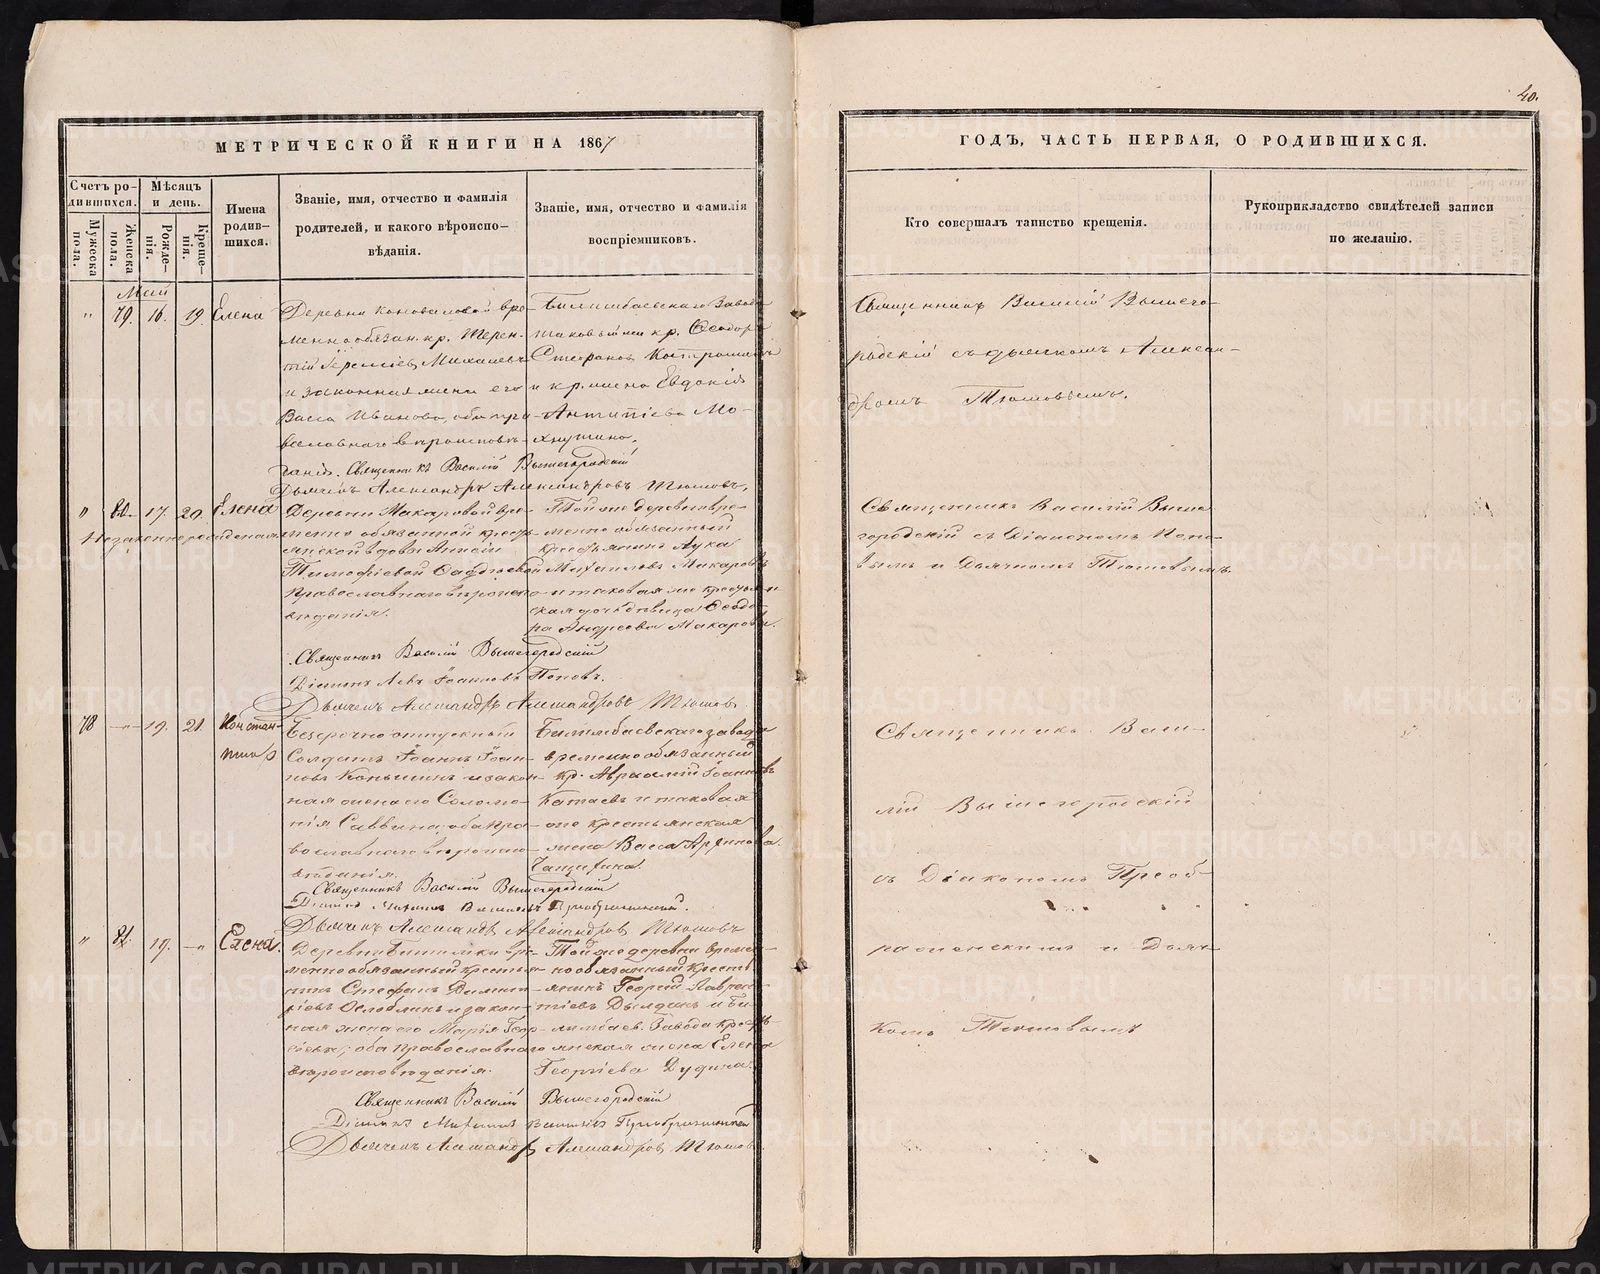 40.
МЕТРИЧЕСКОЙ КНИГИ НА 1867
ГОДЪ, ЧАСТЬ ПЕРВАЯ, О РОДИВШИХСЯ.
Счетъ ро-
дившихся.
Мужеска
пола.
Женска
пола.
Мѣсяцъ
и день.
Рожде-
нія.
Креще-
нія.
Имена
родив-
шихся.
Званіе, имя, отчество и фамилія
родителей, и какого вѣроиспо-
вѣданія.
Званіе, имя, отчество и фамилія
воспріемниковъ.
Кто совершалъ таинство крещенія.
Рукоприкладство свидѣтелей записи
по желанію.
Май
" 79. 16. 19. Елена
Деревни Коноваловой вре-
менно обязан. кр. Терен-
тій Михалевъ
и законная жена его
Васса Иванова, оба пра-
вославнаго вѣроисповѣ-
данія.
Билимбаевскаго Завода
таковый же кр. Ѳеодоръ
Стефановъ
и кр. жена Евдокія
Антипіева Мо-
хнуткина.
Священникъ Василій Вышегородскій
Дьячекъ Александръ Александровъ Тюшовъ.
Священникъ Василій Вышего-
родскій съ дьячкомъ Алексан-
дромъ Тюшовымъ.
" 80. 17. 20. Елена
Незаконнорожденная
Деревни Макаровой вре-
менно обязанной кресть-
янской вдовы
Тимофіевой
Православнаго вѣроиспо-
вѣданія.
Той же деревни вре-
менно обязанный
крестьянинъ Лука
Михаиловъ Макаровъ
и таковая же крестьян-
ская дочь дѣвица Ѳеодо-
ра Андреева Макарова.
Священникъ Василій Вышегородскій
Діаконъ Левъ Іоанновъ Поповъ.
Дьячекъ Александръ Александровъ Тюшов.
Священникъ Василій Выше
городскій съ Діакономъ Попо-
вымъ и Дьячкомъ Тюшовымъ.
78 — 19. 21. Констан-
тинъ
Безсрочно отпускный
Солдатъ Іоаннъ Іоан-
новъ и закон-
ная жена его Соломо-
нія Саввина, оба пра-
вославнаго вѣроиспо-
вѣданія.
Билимбаевскаго завода
временно обязанный
кр. Авраамій Іоанновъ
Катаевъ и таковая
же крестьянская
жена Васса
Священникъ Василій Вышегородскій
Діаконъ Преображенскій.
Дьячекъ Александръ Александров Тюшовъ
Священникъ Васи-
лій Вышегородскій
съ Діакономъ Преоб-
раженскимъ и Дьяч-
комъ Тюшовымъ
" 81. 19. —" Елена.
Деревни Битимки вре-
менно обязанный крестья-
нинъ Стефанъ
и закон-
ная жена его Марія Геор-
гіева; оба Православнаго
вѣроисповѣданія.
Той же деревни времен-
но обязанный кресть-
янинъ Георгій Лаврен-
тіевъ Дылдинъ и Би-
лимбаев. Завода кресть-
янская жена Елена
Георгіева Дудина.
Священникъ Василій Вышегородскій
Діаконъ Преображенскій
Дьячекъ Александръ Александровъ Тюшов